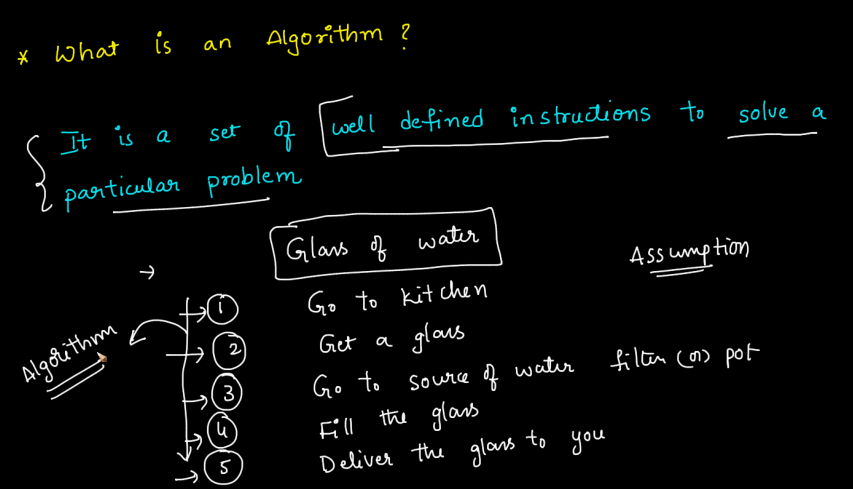 * What is an Algorithm ?
It is a set of well defined instructions to solve a
particular problem
Glass of water
Assumption
→
Algorithm
1 Go to kitchen
2 Get a glass
3 Go to source of water filter (or) pot
4 Fill the glass
5 Deliver the glass to you